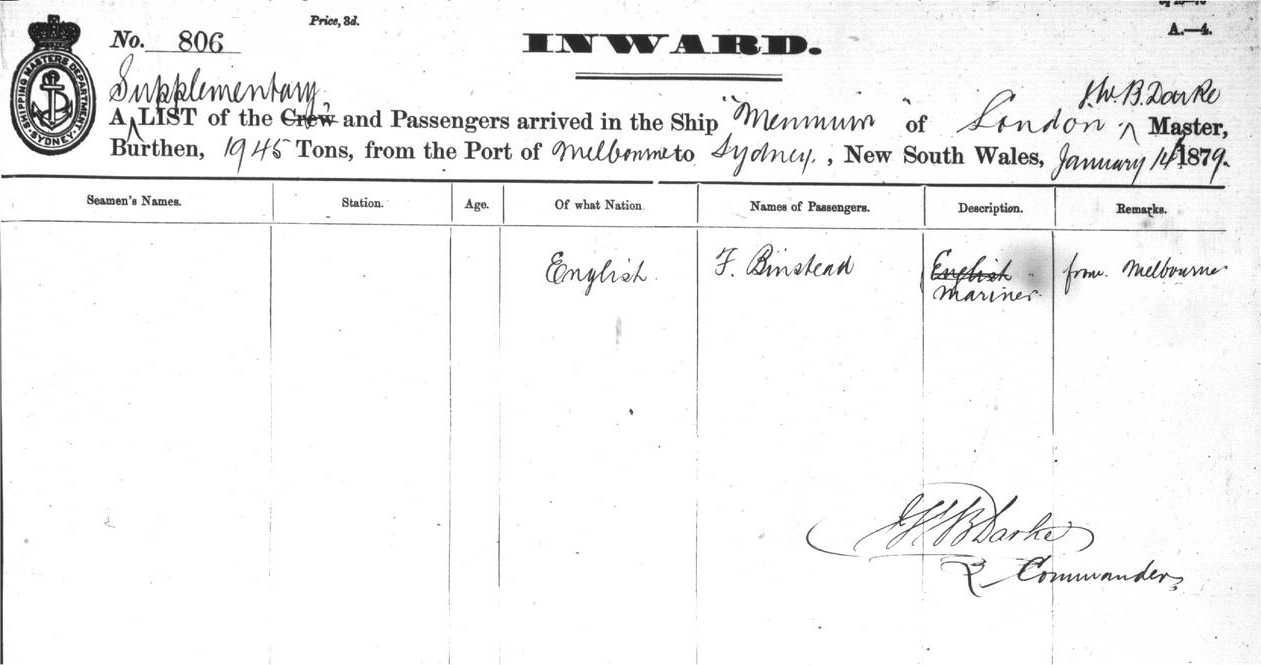 Price, 3d.
A.—4.
No. 806
INWARD.
SHIPPING MASTERS DEPARTMENT SYDNEY
Supplementary
J.W.B. Darke
A LIST of the Crew and Passengers arrived in the Ship "Menmuir" of London Master,
Burthen, 1945 Tons, from the Port of Melbourne to Sydney, New South Wales, January 14/1879.
Seamen's Names. Station. Age. Of what Nation Names of Passengers. Description. Remarks.
English F. Binstead English from Melbourne
mariner
JWB Darke
Commander